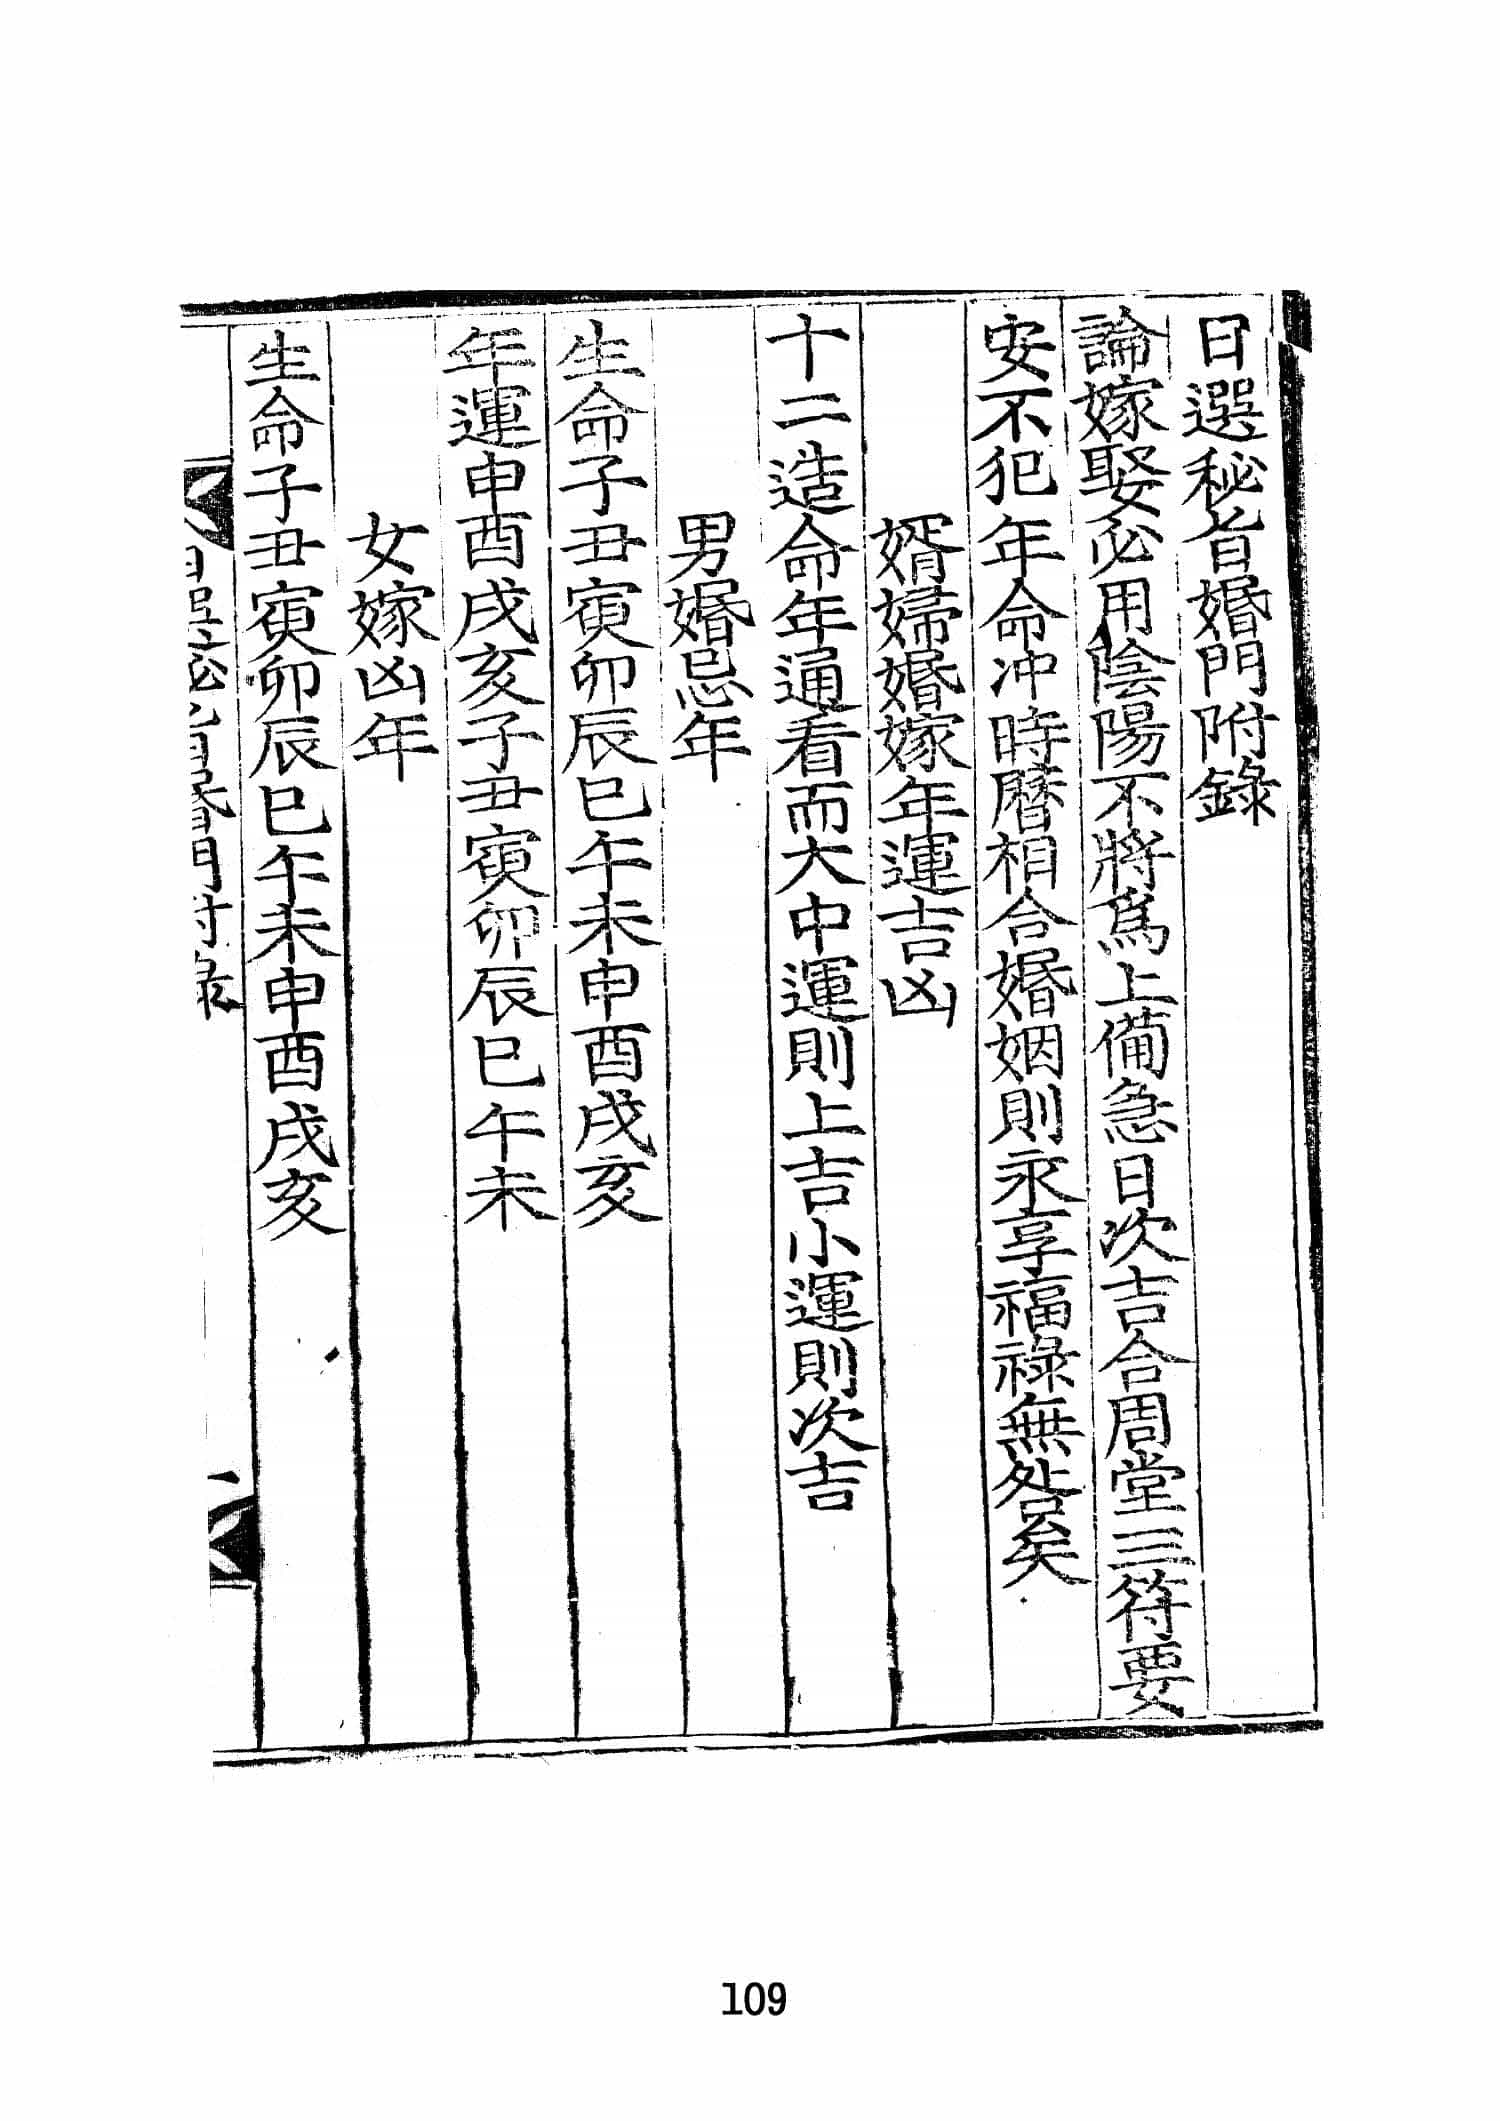 日選秘旨婚門附錄
論嫁娶必用陰陽不將爲上備急日次吉合周堂三符要
安不犯年命冲時曆相合婚姻則永享福祿無咎矣
婿婦婚嫁年運吉凶
十二造命年通看而大中運則上吉小運則次吉
男婚忌年
生命子丑寅卯辰巳午未申酉戌亥
年運申酉戌亥子丑寅卯辰巳午未
女嫁凶年
生命子丑寅卯辰巳午未申酉戌亥
109